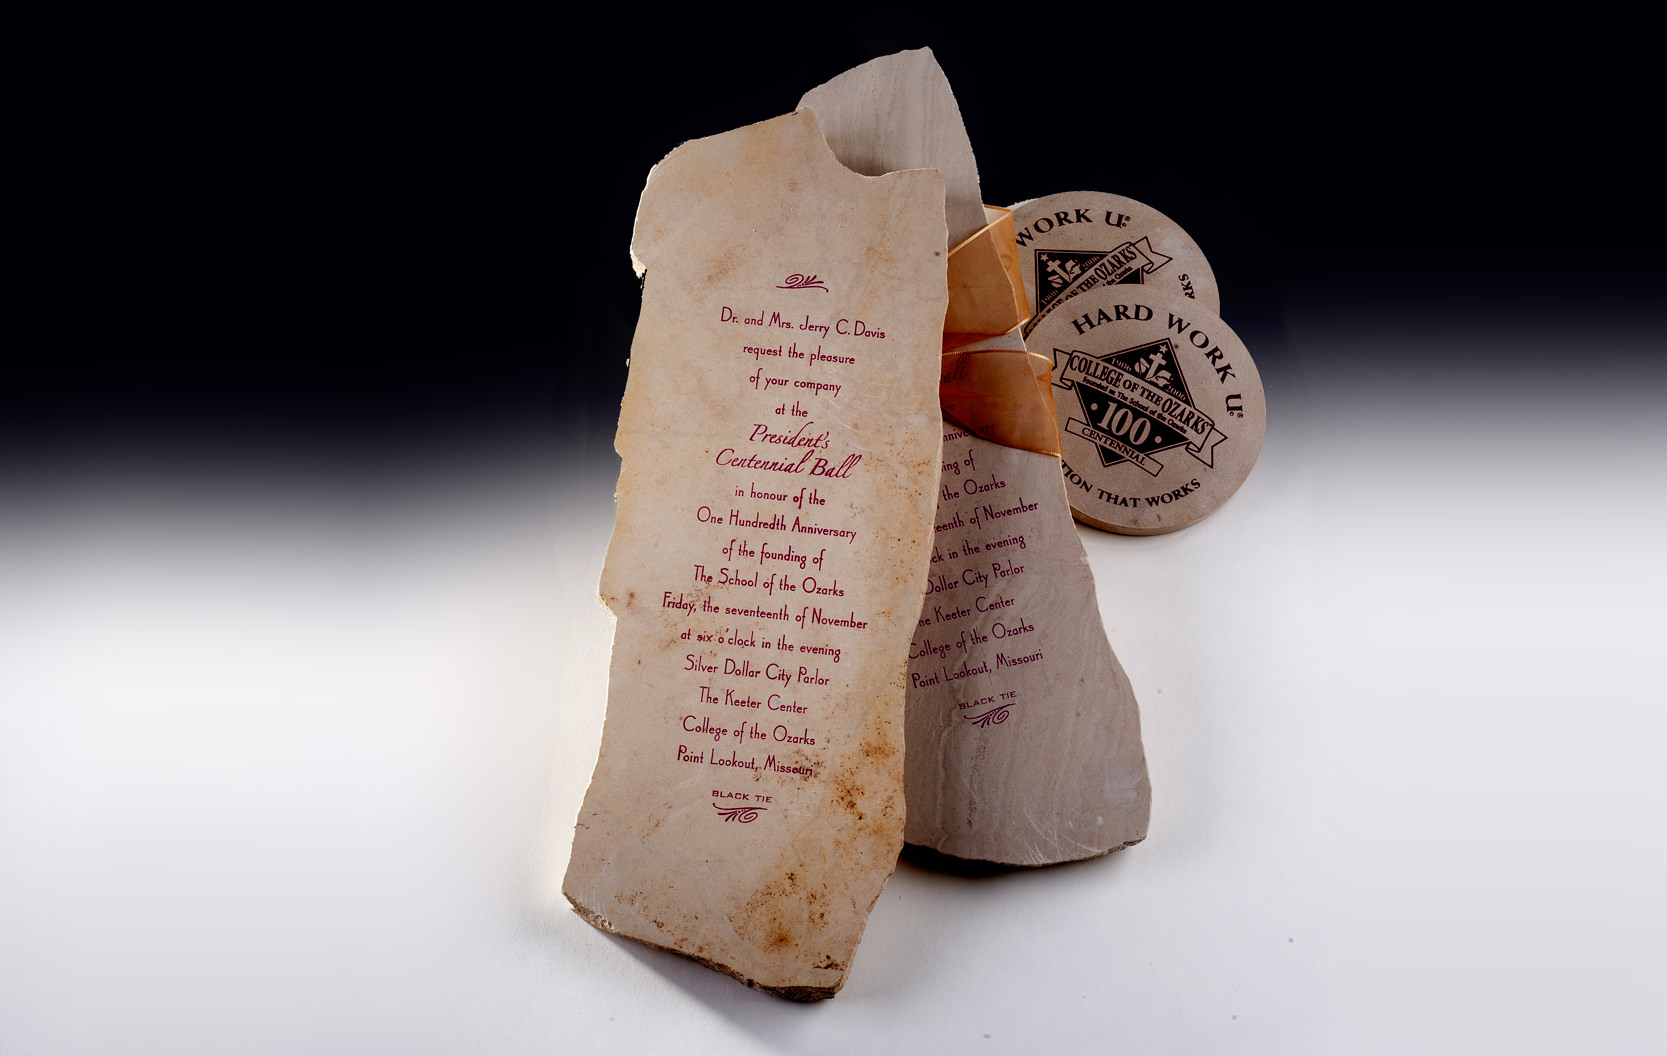 Dr. and Mrs. Jerry C. Davis
request the pleasure
of your company
at the
President's
Centennial Ball
in honour of the
One Hundredth Anniversary
of the founding of
The School of the Ozarks
Friday, the seventeenth of November
at six o'clock in the evening
Silver Dollar City Parlor
The Keeter Center
College of the Ozarks
Point Lookout, Missouri
BLACK TIE
Ball
nniversary
ing of
the Ozarks
teenth of November
ck in the evening
Dollar City Parlor
he Keeter Center
College of the Ozarks
Point Lookout, Missouri
BLACK TIE
WORK U.®
1906
OF THE OZARKS
RKS
HARD WORK U.®
1906 2006
COLLEGE OF THE OZARKS
Founded as The School of the Ozarks
·100·
CENTENNIAL
TION THAT WORKS